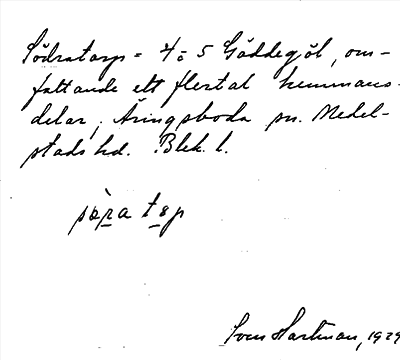 Södratorp = 4 o 5 Gäddegöl, om-
fattande ett flertal hemmans-
delar, Äringsboda sn. Medel-
stads hd. Blek. l.
sàra tǝp
Sven Hartman, 1929